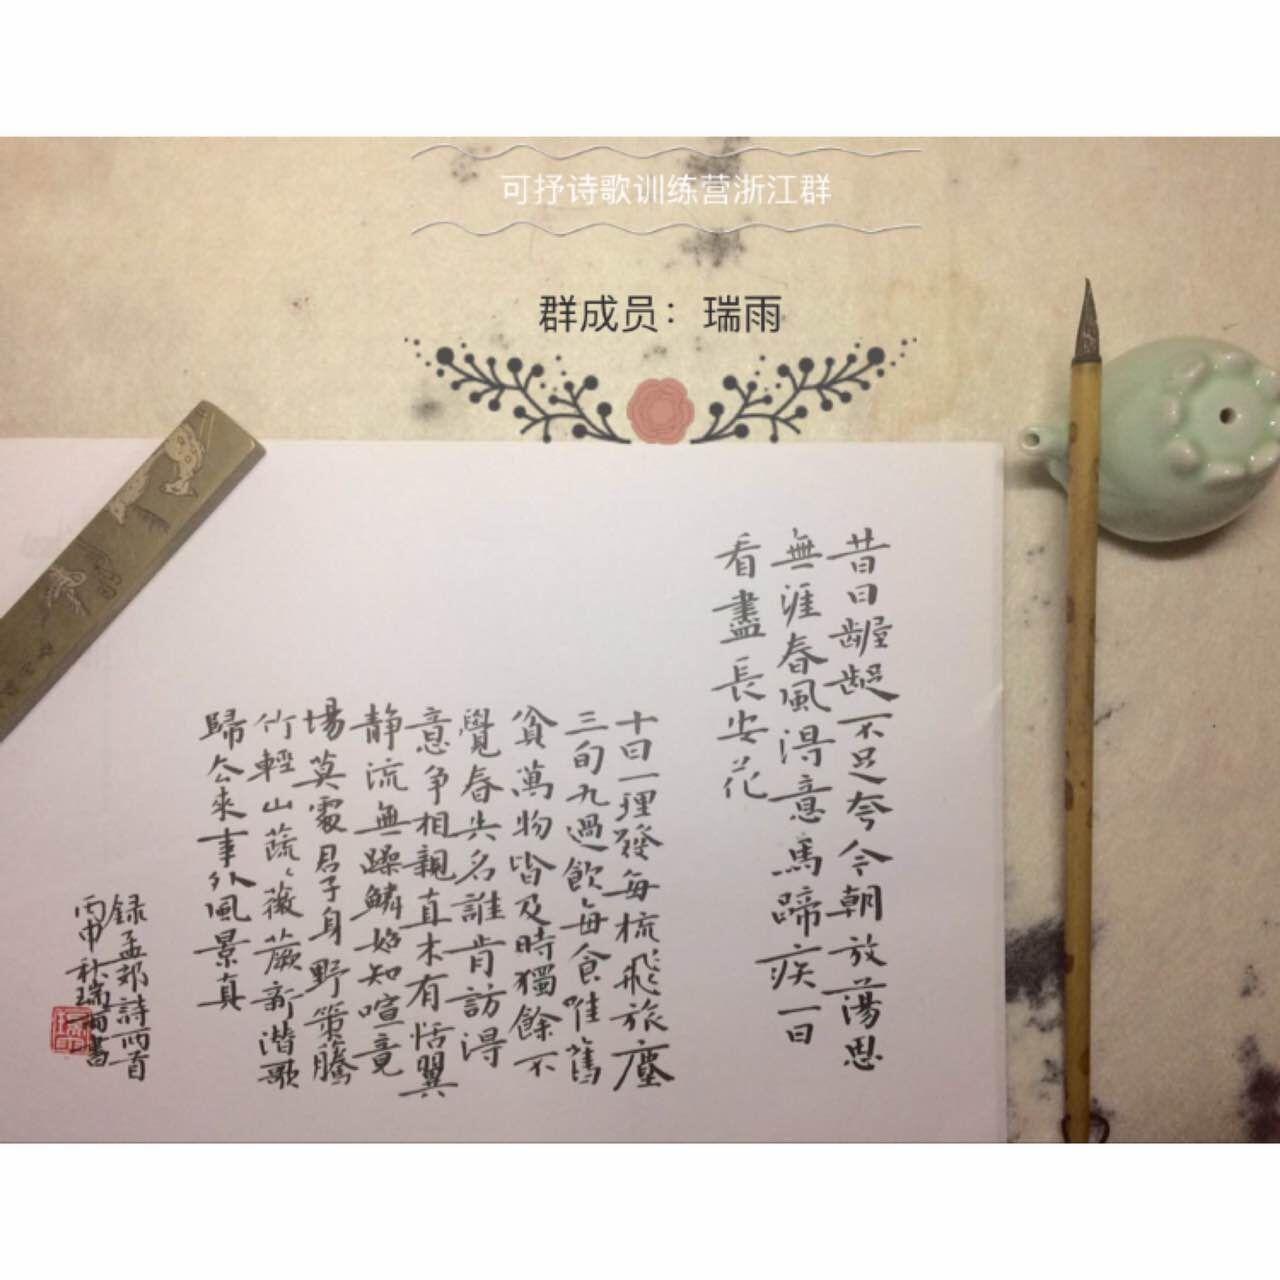 可抒诗歌训练营浙江群
群成员：瑞雨
昔日龌龊不足夸今朝放蕩思
無涯春風得意馬蹄疾一日
看盡長安花
十日一理發每梳飛旅塵
三旬九過飲每食唯舊
貧萬物皆及時獨餘不
覺春失名誰肯訪得
意爭相親直木有恬翼
静流無躁鱗始知喧竟
場莫處君子身野策騰
竹輕山蔬蔬薇蕨新潜歌
歸去來事外風景真
録孟郊詩两首
丙申秋瑞雨書